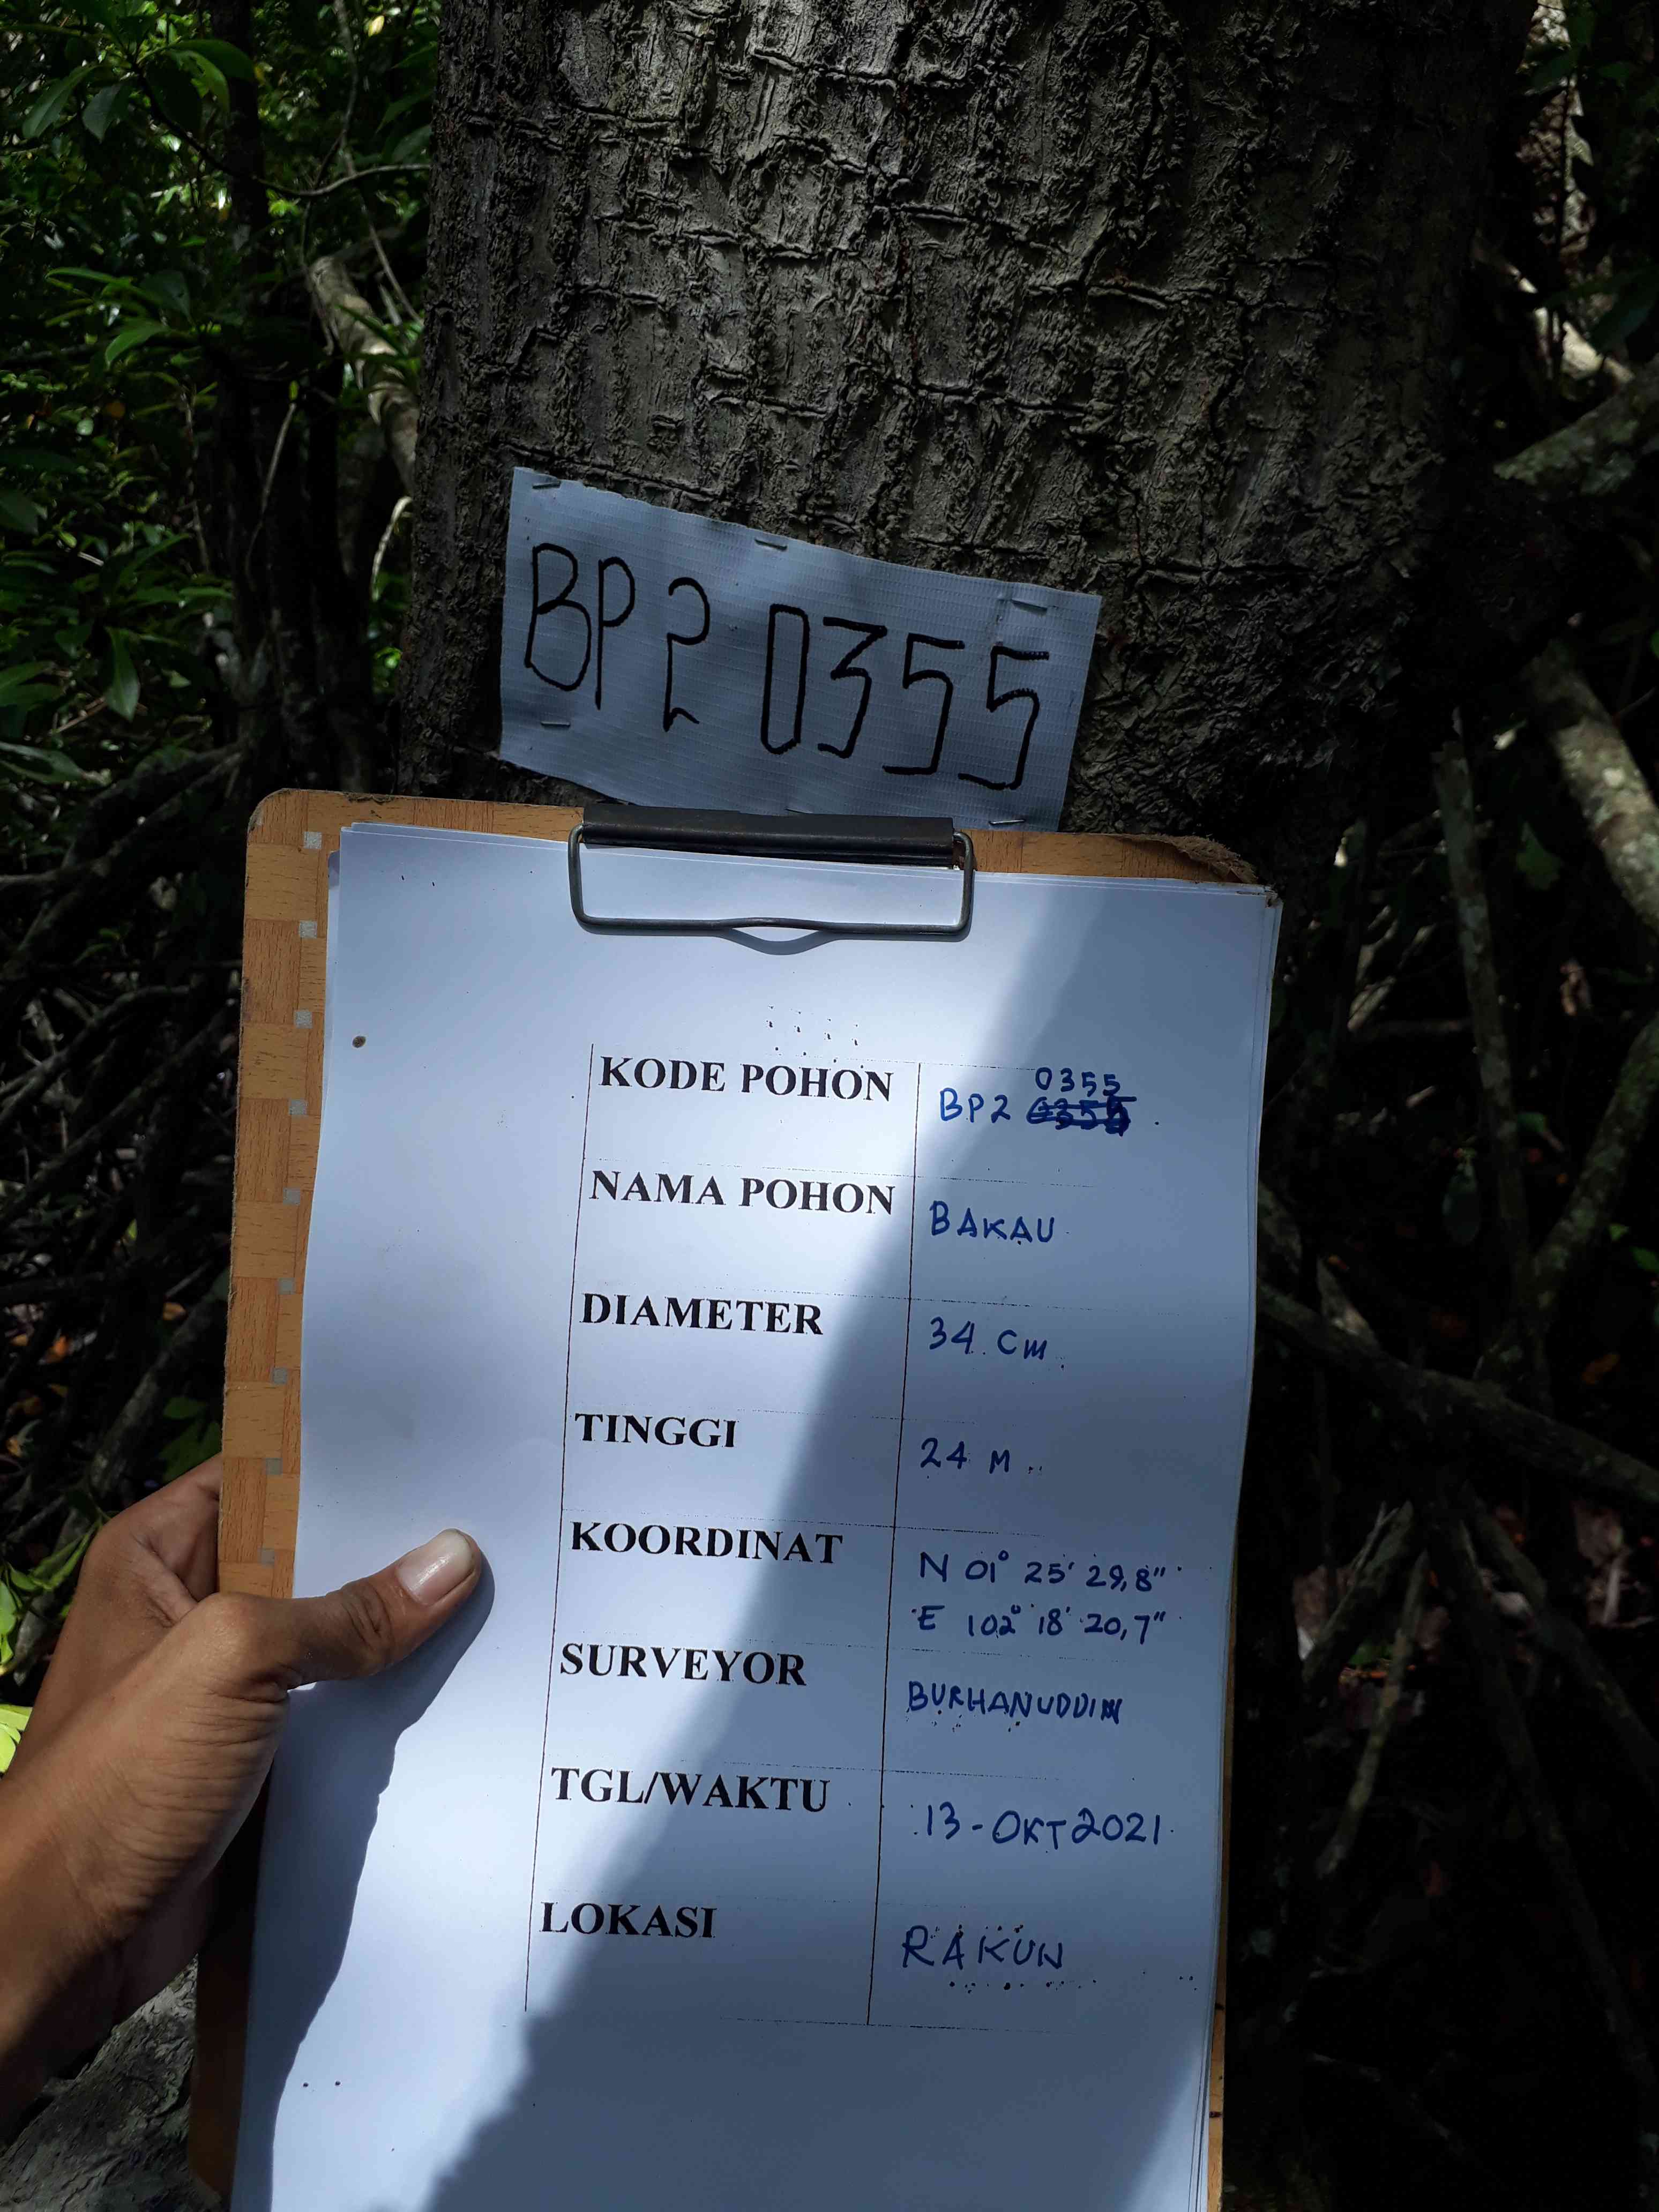 BP2 0355
KODE POHON BP2 0355
NAMA POHON BAKAU
DIAMETER 34 cm
TINGGI 24 M
KOORDINAT N 01° 25' 29,8"
E 102° 18' 20,7"
SURVEYOR BURHANUDDIN
TGL/WAKTU 13-OKT 2021
LOKASI RAKUN